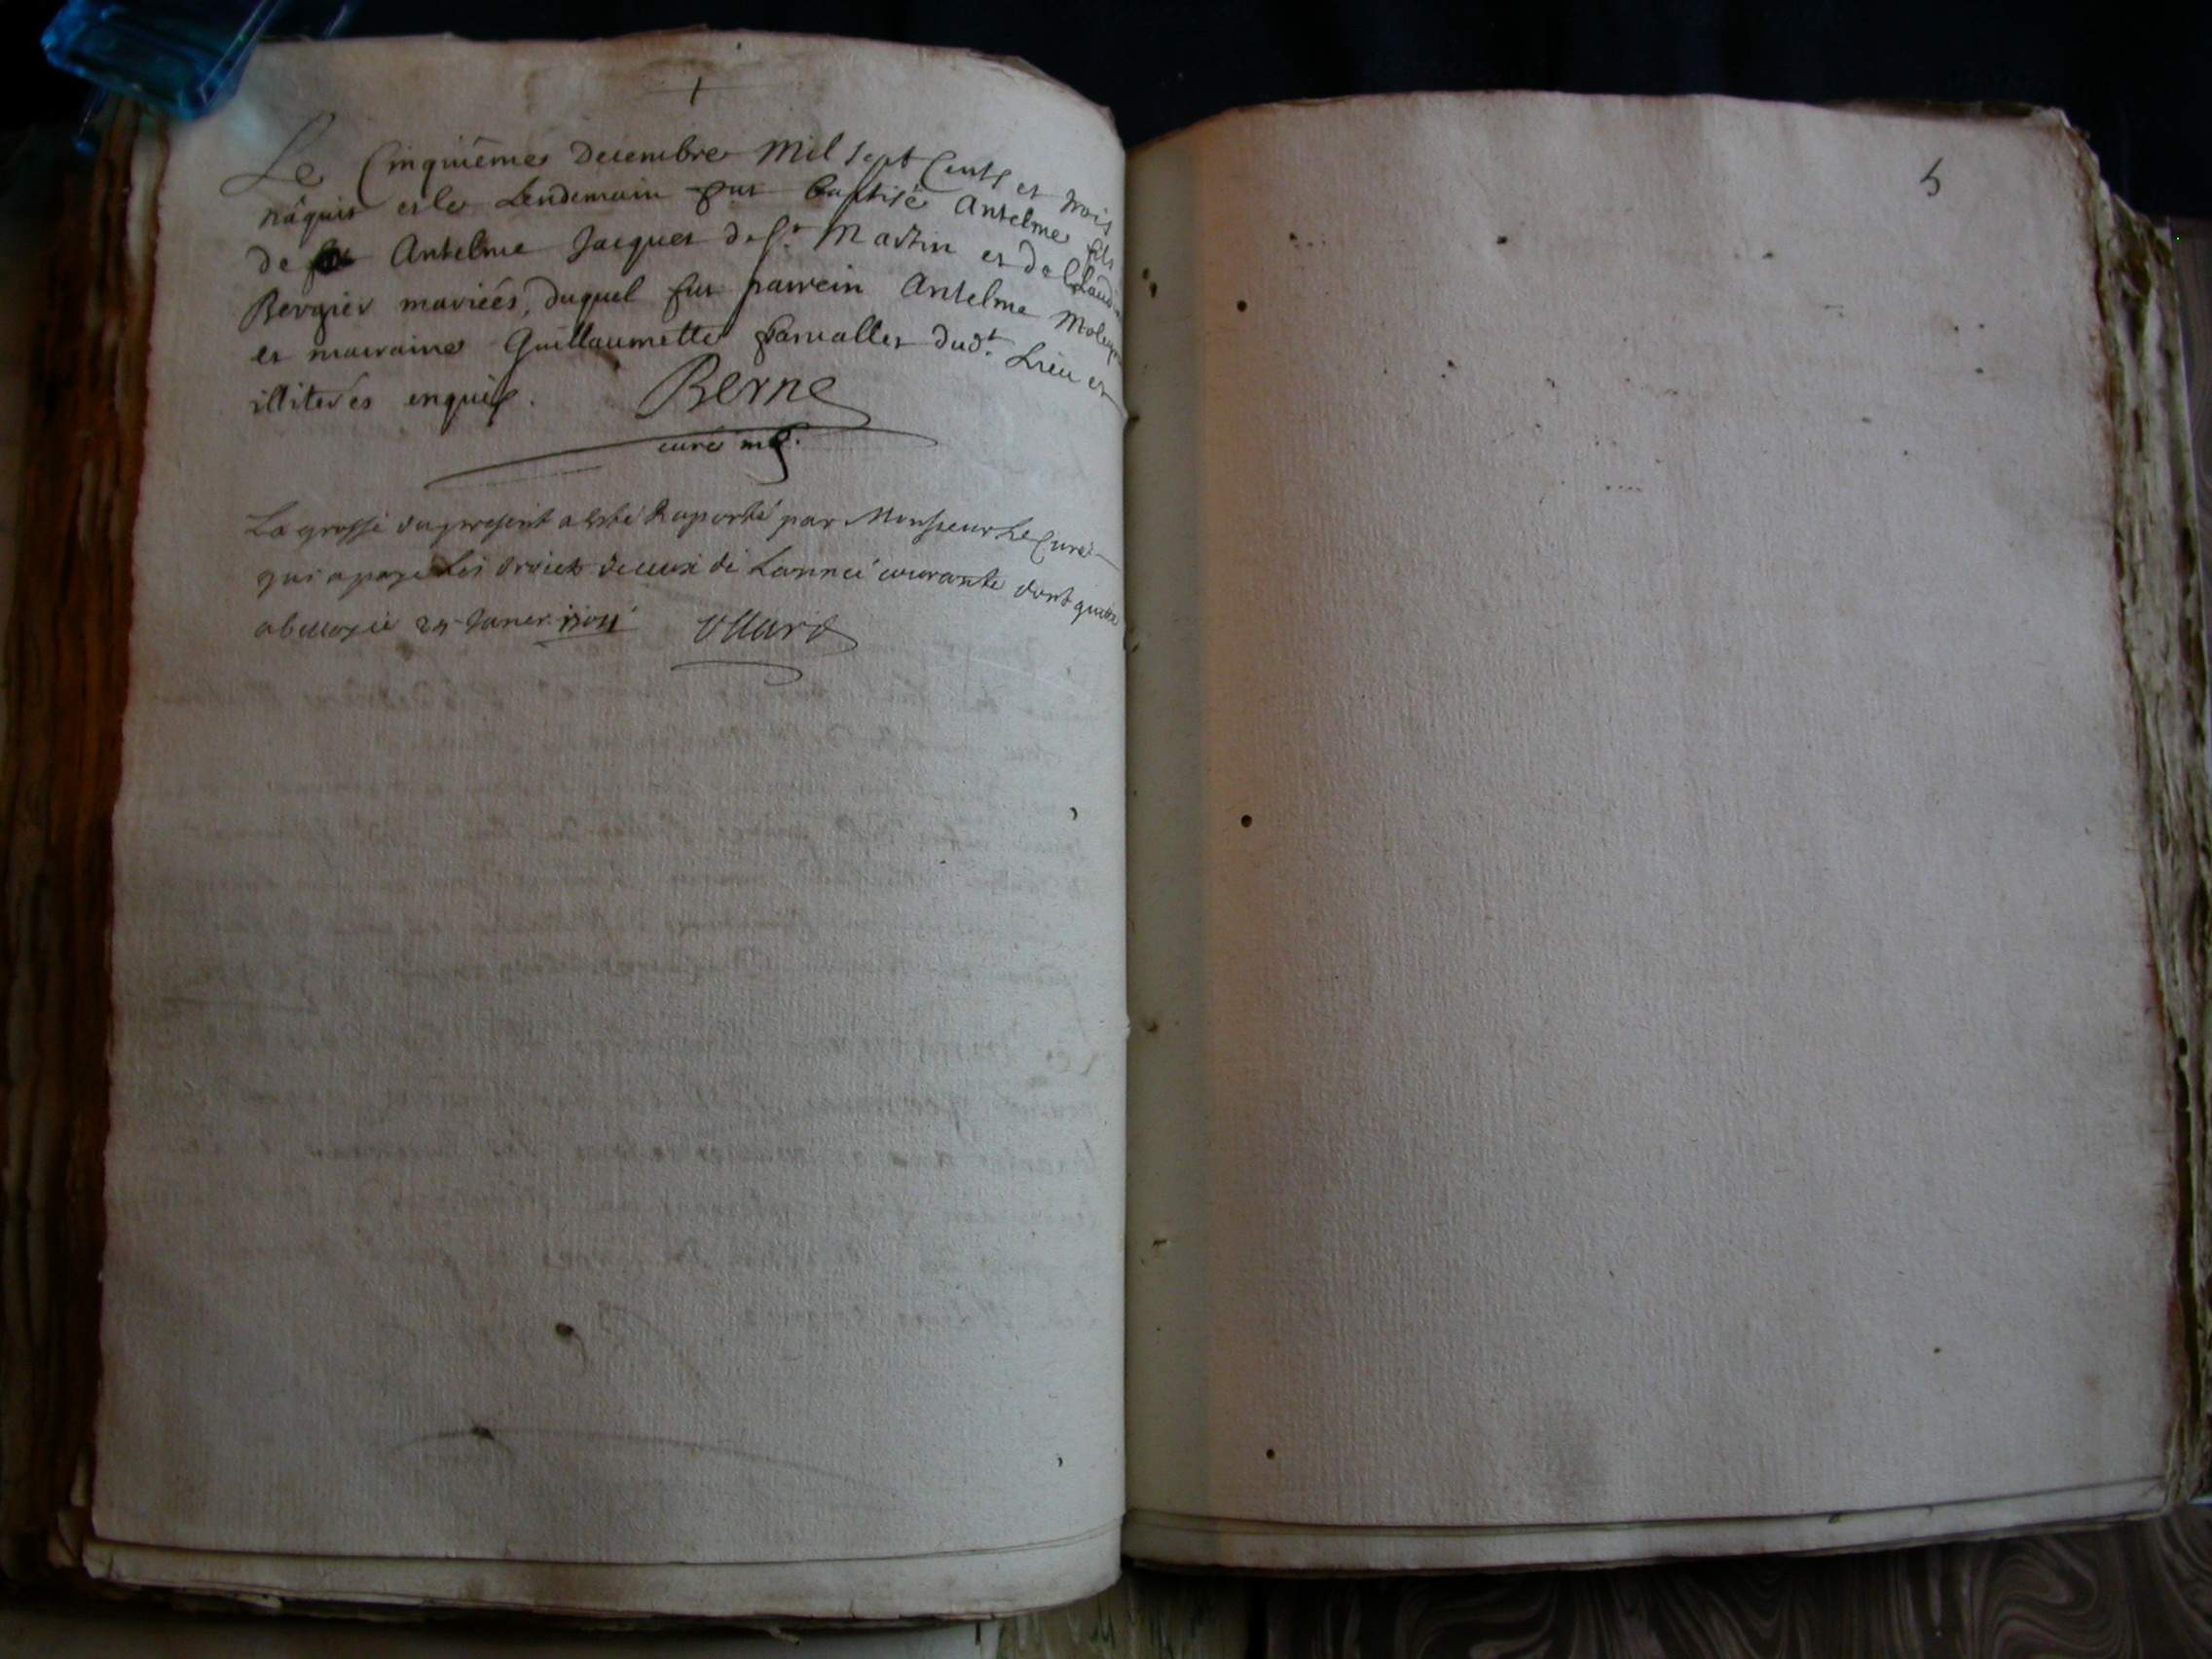 Le Cinquiême Decembre mil sept Cents et trois
nâquit et le Lendemain fut baptisé Antelme fils
de Antelme Jacquet de St Martin et de Claud
Bergier mariées, duquel fut parrein Antelme
et marraine Guillaumette dudt Lieu et
illiterés enquis. Berne
curé
La grosse du present a esté Raporté par Monsieur Le Curé
qui a payé Les droicts de ceux de Lannée courante dont quitte
a belley ce 24 Janer 1704
5